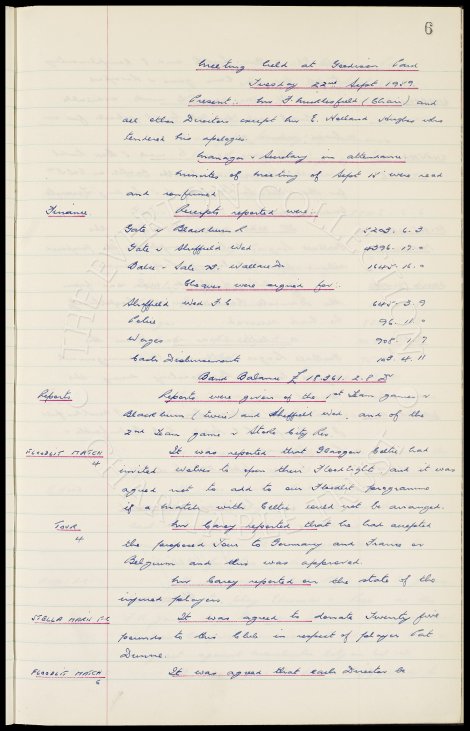 6
Meeting held at Goodison Park
Tuesday 22nd Sept 1959
Present:. Mr F. Micklesfield (Chair) and
all other Directors except Mr E. Holland Hughes who
tendered his apologies.
Manager & Secretary in attendance.
Minutes of Meeting of Sept 15 were read
and confirmed
Finance Receipts reported were:.
Gate v Blackburn R 5203. 6. 3
Gate v Sheffield Wed 4396. 17. 0
Balce - Sale Wallace Dr 1645. 16. 0
Cheques were signed for:.
Sheffield Wed F.C. 645. 3. 9
Police 96. 11. 0
Wages 908. 1. 7
Cash Disbursements 143. 4. 11
Bank Balance £ 18361. 2. 8 Dr
Reports Reports were given of the 1st Team games v
Blackburn (twice) and Sheffield Wed, and of the
2nd Team game v Stoke City Res
FLOODLIT MATCH It was reported that Glasgow Celtic had
4
invited Wolves to open their Floodlight and it was
agreed not to add to our Floodlit programme
if a match with Celtic could not be arranged.
TOUR Mr Carey reported that he had accepted
4
the proposed Tour to Germany and France or
Belgium and this was approved.
Mr Carey reported on the state of the
injured players
STELLA MARIS F.C It was agreed to donate Twenty five
pounds to this Club in respect of player Pat
Dunne.
FLOODLIT MATCH It was agreed that each Director be
5
THE EVERTON COLLECTION